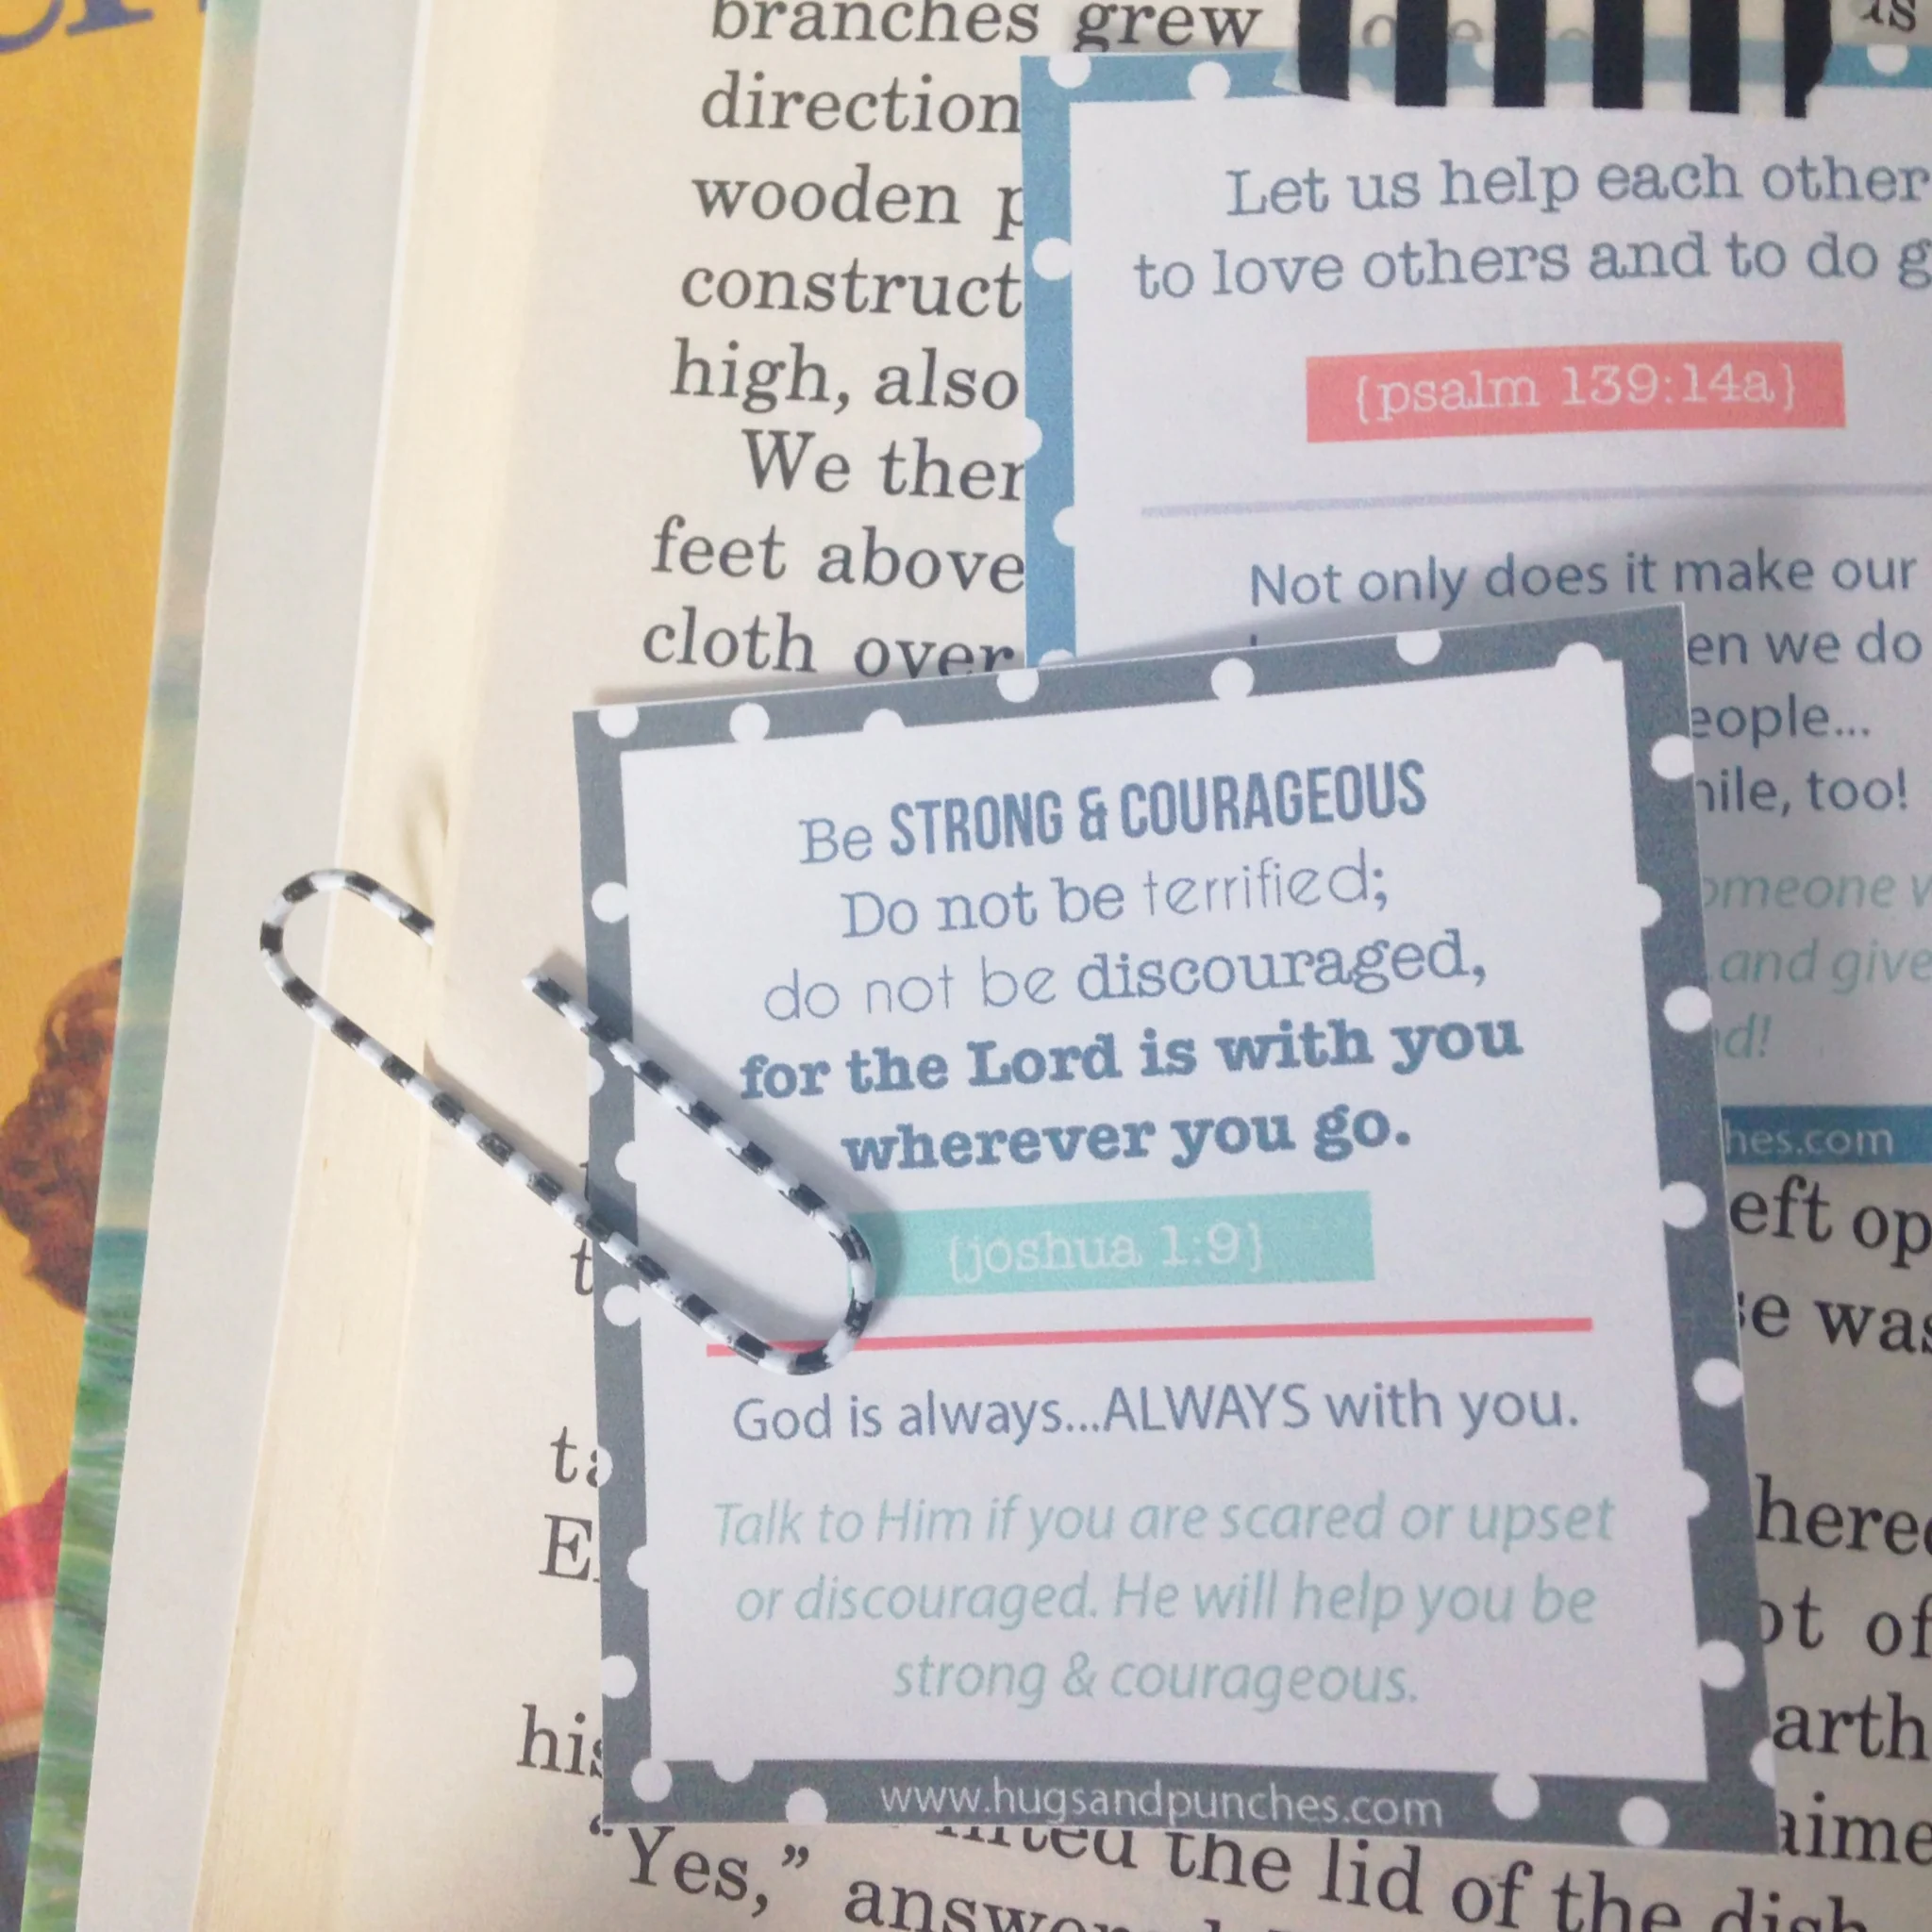 branches grew
direction
wooden
construct
high, also
We
feet above
cloth over
Let us help each other
to love others and to do
{psalm 139:14a}
Not only does it make our
we do
too!
and give
Be STRONG & COURAGEOUS
Do not be terrified;
do not be discouraged,
for the Lord is with you
wherever you go.
{joshua 1:9}
God is always...ALWAYS with you.
Talk to Him if you are scared or upset
or discouraged. He will help you be
strong & courageous.
www.hugsandpunches.com
was
of
his
the lid of the dish
“Yes,”